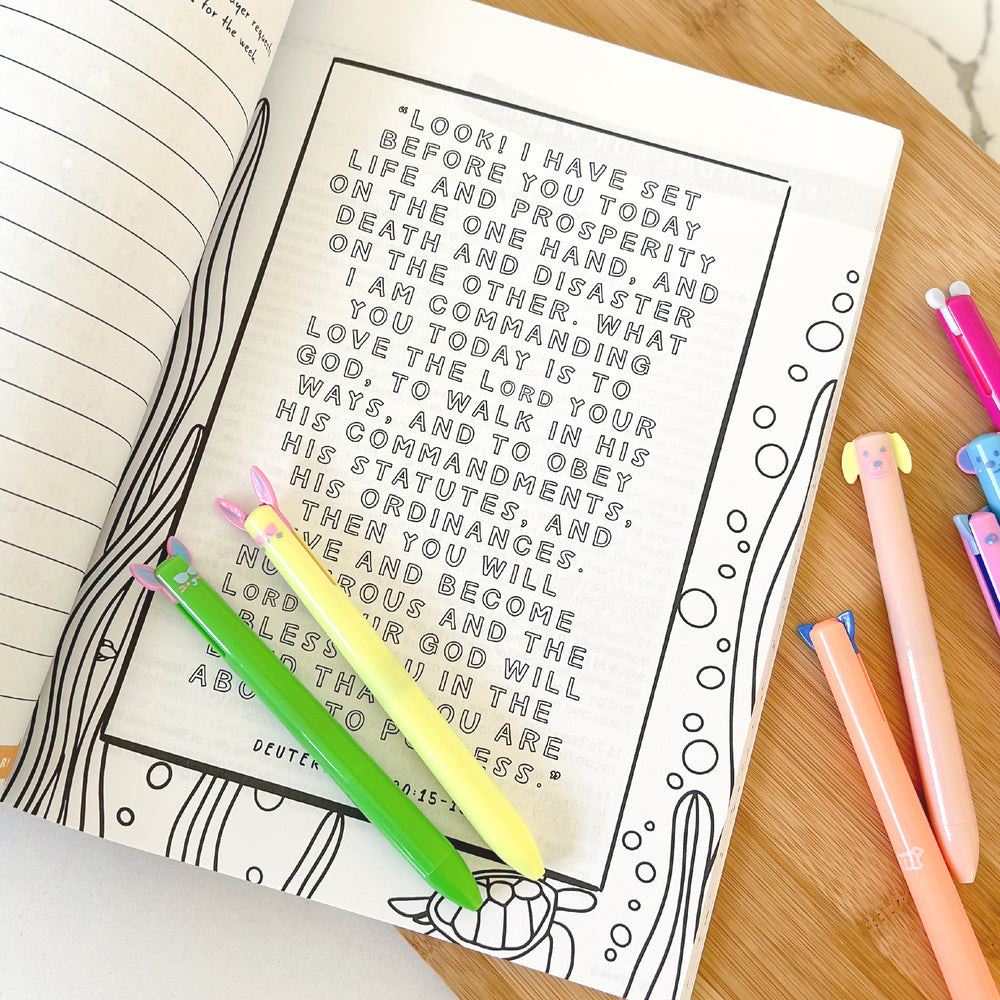 requests
for the week.
“LOOK! I HAVE SET
BEFORE YOU TODAY
LIFE AND PROSPERITY
ON THE ONE HAND, AND
DEATH AND DISASTER
ON THE OTHER. WHAT
I AM COMMANDING
YOU TODAY IS TO
LOVE THE LORD YOUR
GOD, TO WALK IN HIS
WAYS, AND TO OBEY
HIS COMMANDMENTS,
HIS STATUTES, AND
HIS ORDINANCES.
THEN YOU WILL
AND BECOME
AND THE
LORD GOD WILL
BLESS IN THE
ARE
TO